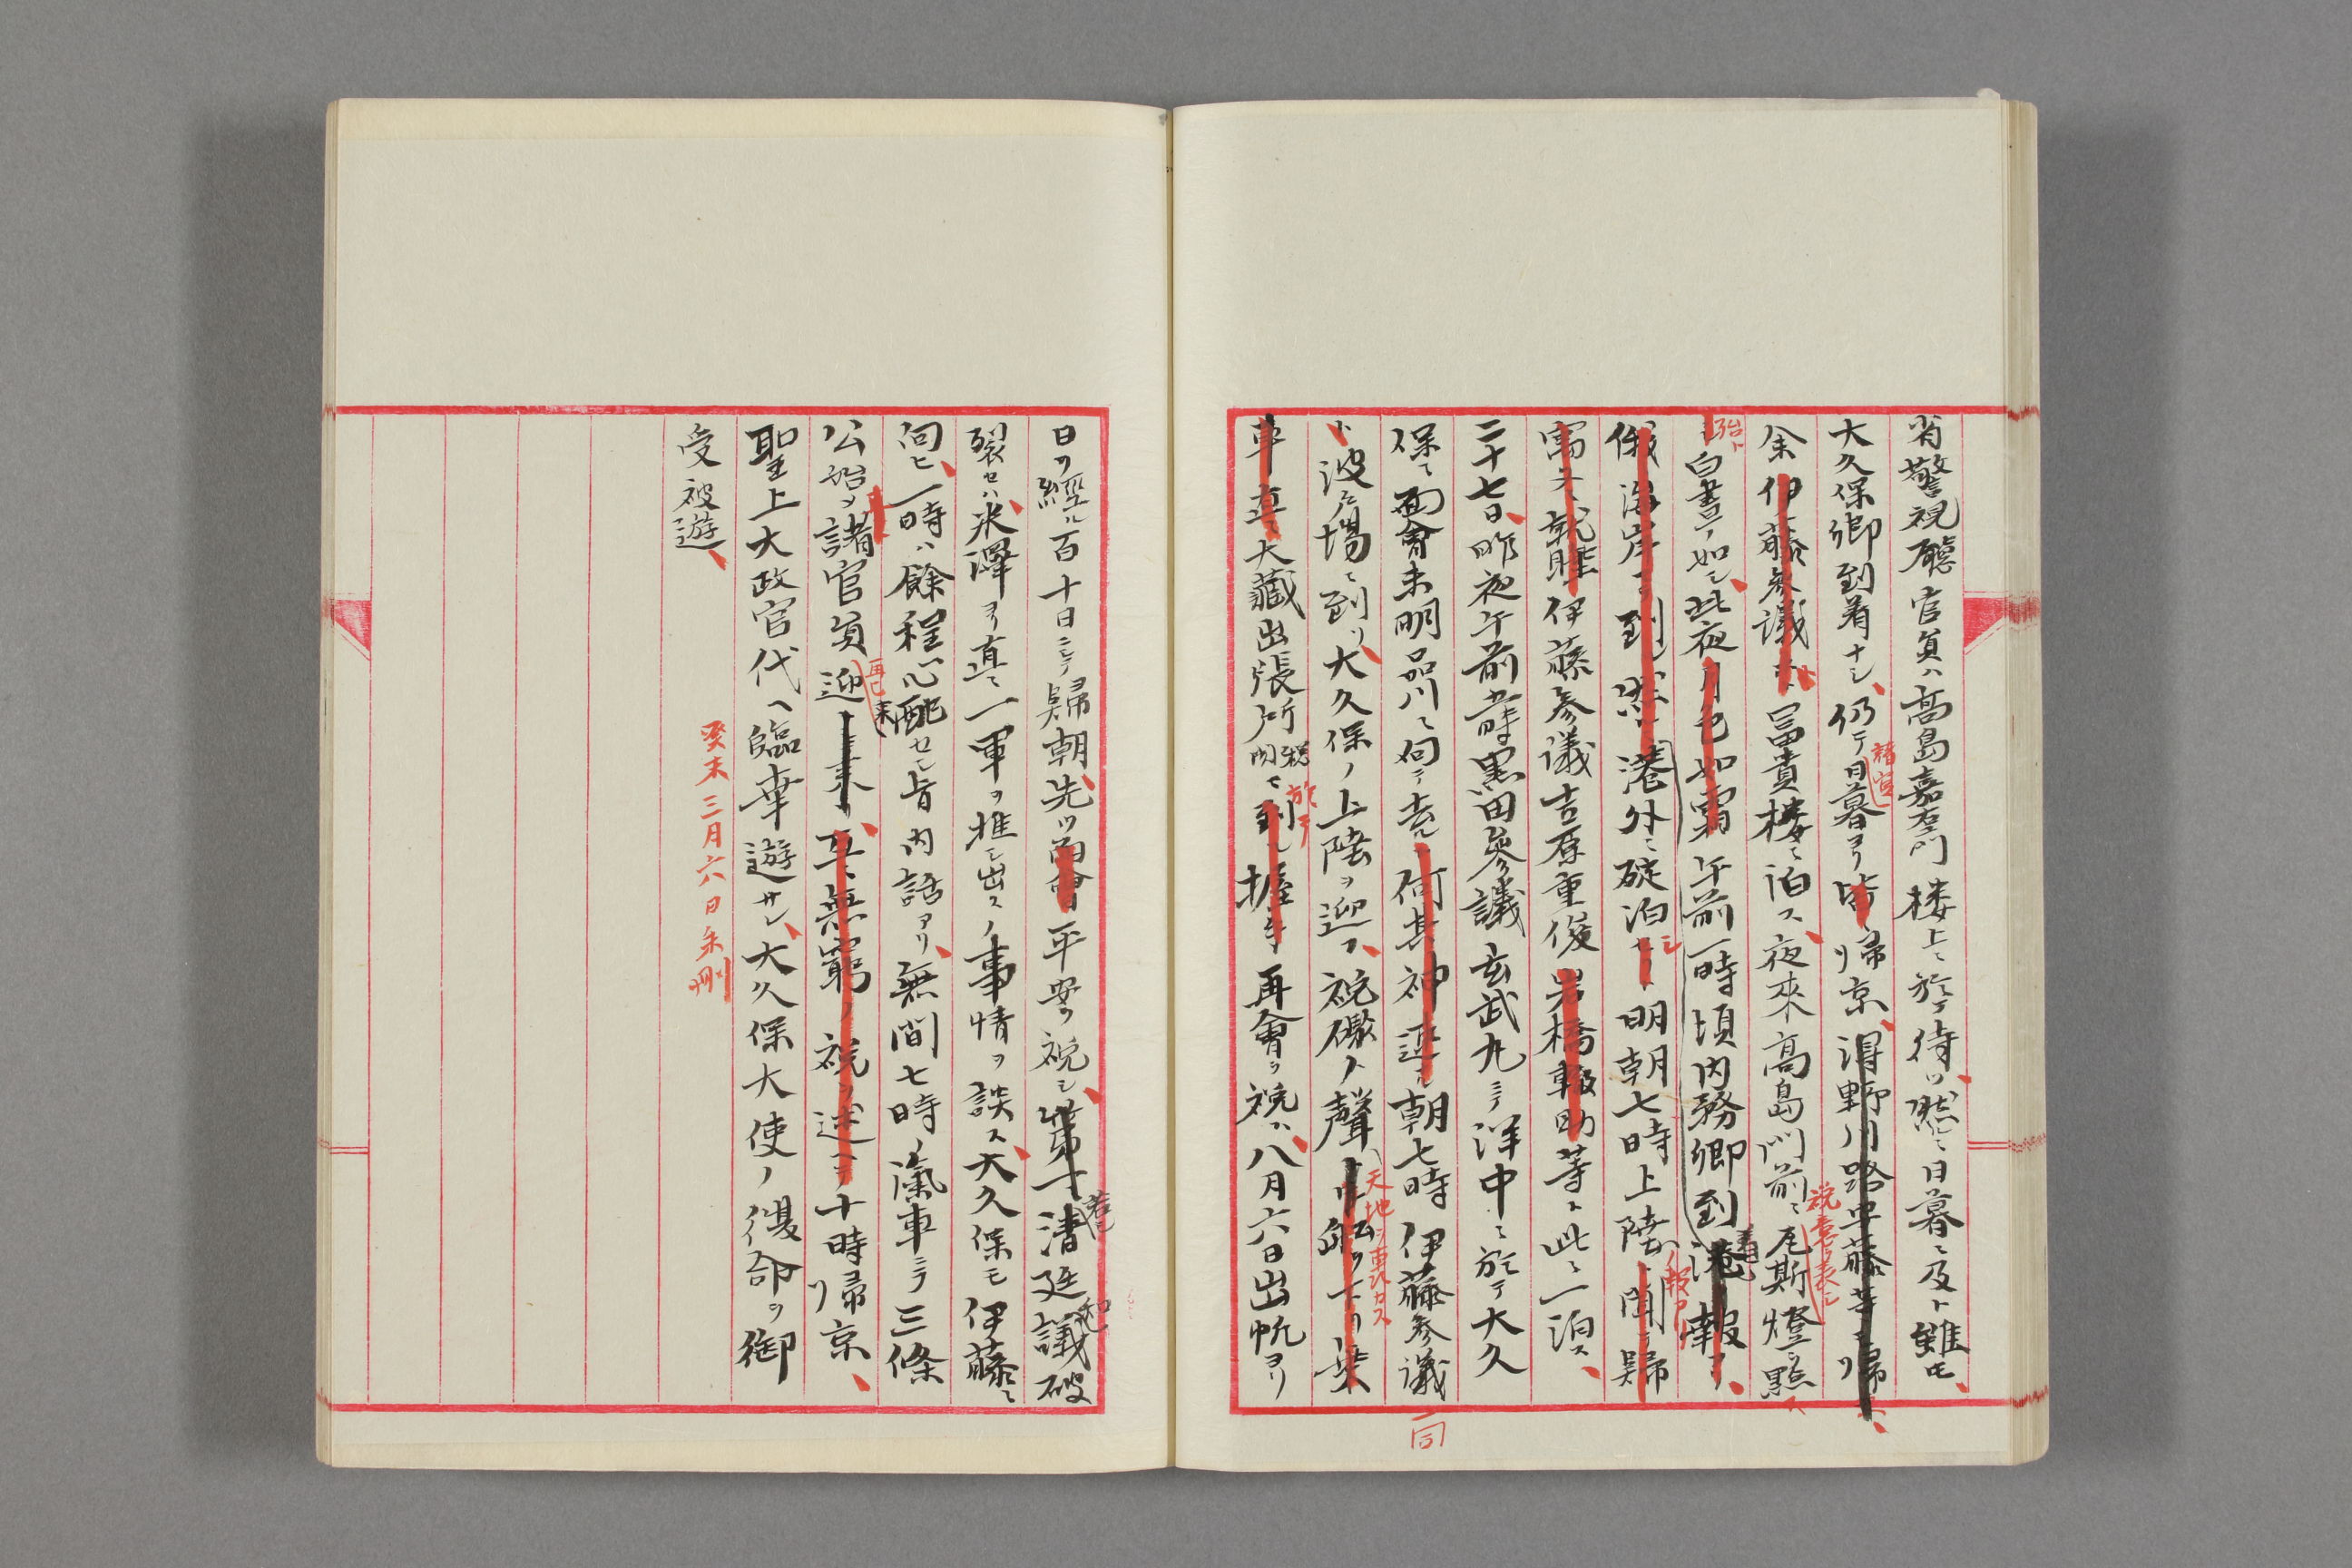 省警視廳官員ハ髙島嘉右衛門楼上ニ於テ待ツ然ルニ日暮ニ及ト雖モ
大久保卿到着ナシ仍テ日暮ヨリ諸官皆帰京淂野川路安藤等モ帰
余伊藤参議ト冨貴楼ニ泊ス夜來髙島門前ニ祝意ヲ表シ瓦斯燈ヲ點ス
殆ト白晝ノ如シ此夜月色如霜午前一時頃内務卿到港ノ報アリ
俄ニ海岸ニ到ル港外ニ碇泊シ明朝七時上陸ノ報アリ聞テ歸
寓又就睡伊藤参議吉原重俊岩橋轍助等ト此ニ一泊ス
二十七日昨夜午前一時黒田參議玄武丸ニテ洋中ニ於テ大久
保ニ面會未明品川ニ向テ去ル何其神速ニ朝七時伊藤参議一同
ト波止場ニ到リ大久保ノ上陸ヲ迎フ祝礮ノ聲天地ヲ東カス船ヲ下リ乘
車直ニ大藏出張所税関ニ於テ到ル握手再會ヲ祝ス八月六日出帆ヨリ
日ヲ經ル百十日ニシテ歸朝先ツ面會平安ヲ祝シ第一若シ清廷和議破
裂セハ米澤ヨリ直ニ一軍ヲ推シ出スノ事情ヲ談ス大久保モ伊藤ニ
向ヒ一時ハ餘程心配セシ旨内話アリ無間七時ノ滊車ニテ三條
公始メ諸官員再ヒ来迎来リ互ニ無窮ノ祝ヲ述ヘテ十時リ帰京
聖上大政官代ヘ臨幸遊サレ大久保大使ノ復命ヲ御
受被遊
癸未三月六日朱刪